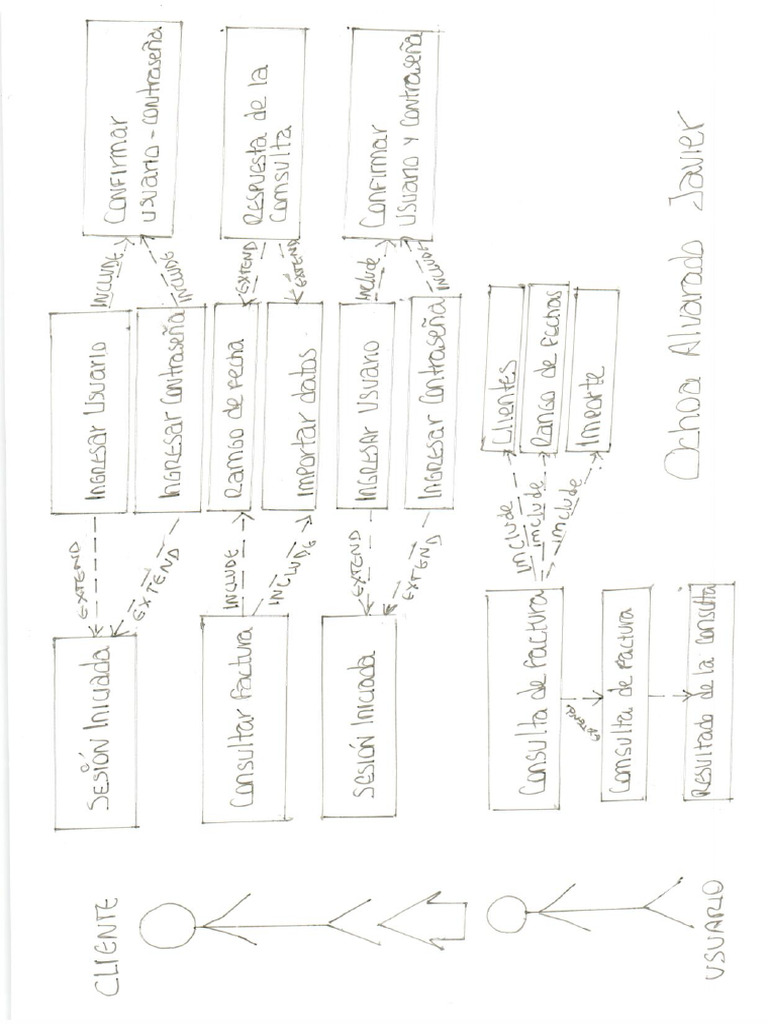 CLIENTE
SESIÓN INICIADA
EXTEND
EXTEND
INGRESAR USUARIO
INGRESAR CONTRASEÑA
INCLUDE
INCLUDE
CONFIRMAR
USUARIO - CONTRASEÑA
CONSULTAR FACTURA
INCLUDE
INCLUDE
RANGO DE FECHA
IMPORTAR DATOS
EXTEND
EXTEND
RESPUESTA DE LA
CONSULTA
SESIÓN INICIADA
EXTEND
EXTEND
INGRESAR USUARIO
INGRESAR CONTRASEÑA
INCLUDE
INCLUDE
CONFIRMAR
USUARIO Y CONTRASEÑA
USUARIO
CONSULTA DE FACTURA
INCLUDE
INCLUDE
INCLUDE
CLIENTES
RANGO DE FECHAS
IMPORTE
CONSULTA DE FACTURA
RESULTADO DE LA CONSULTA
OCHOA ALVARADO JAVIER